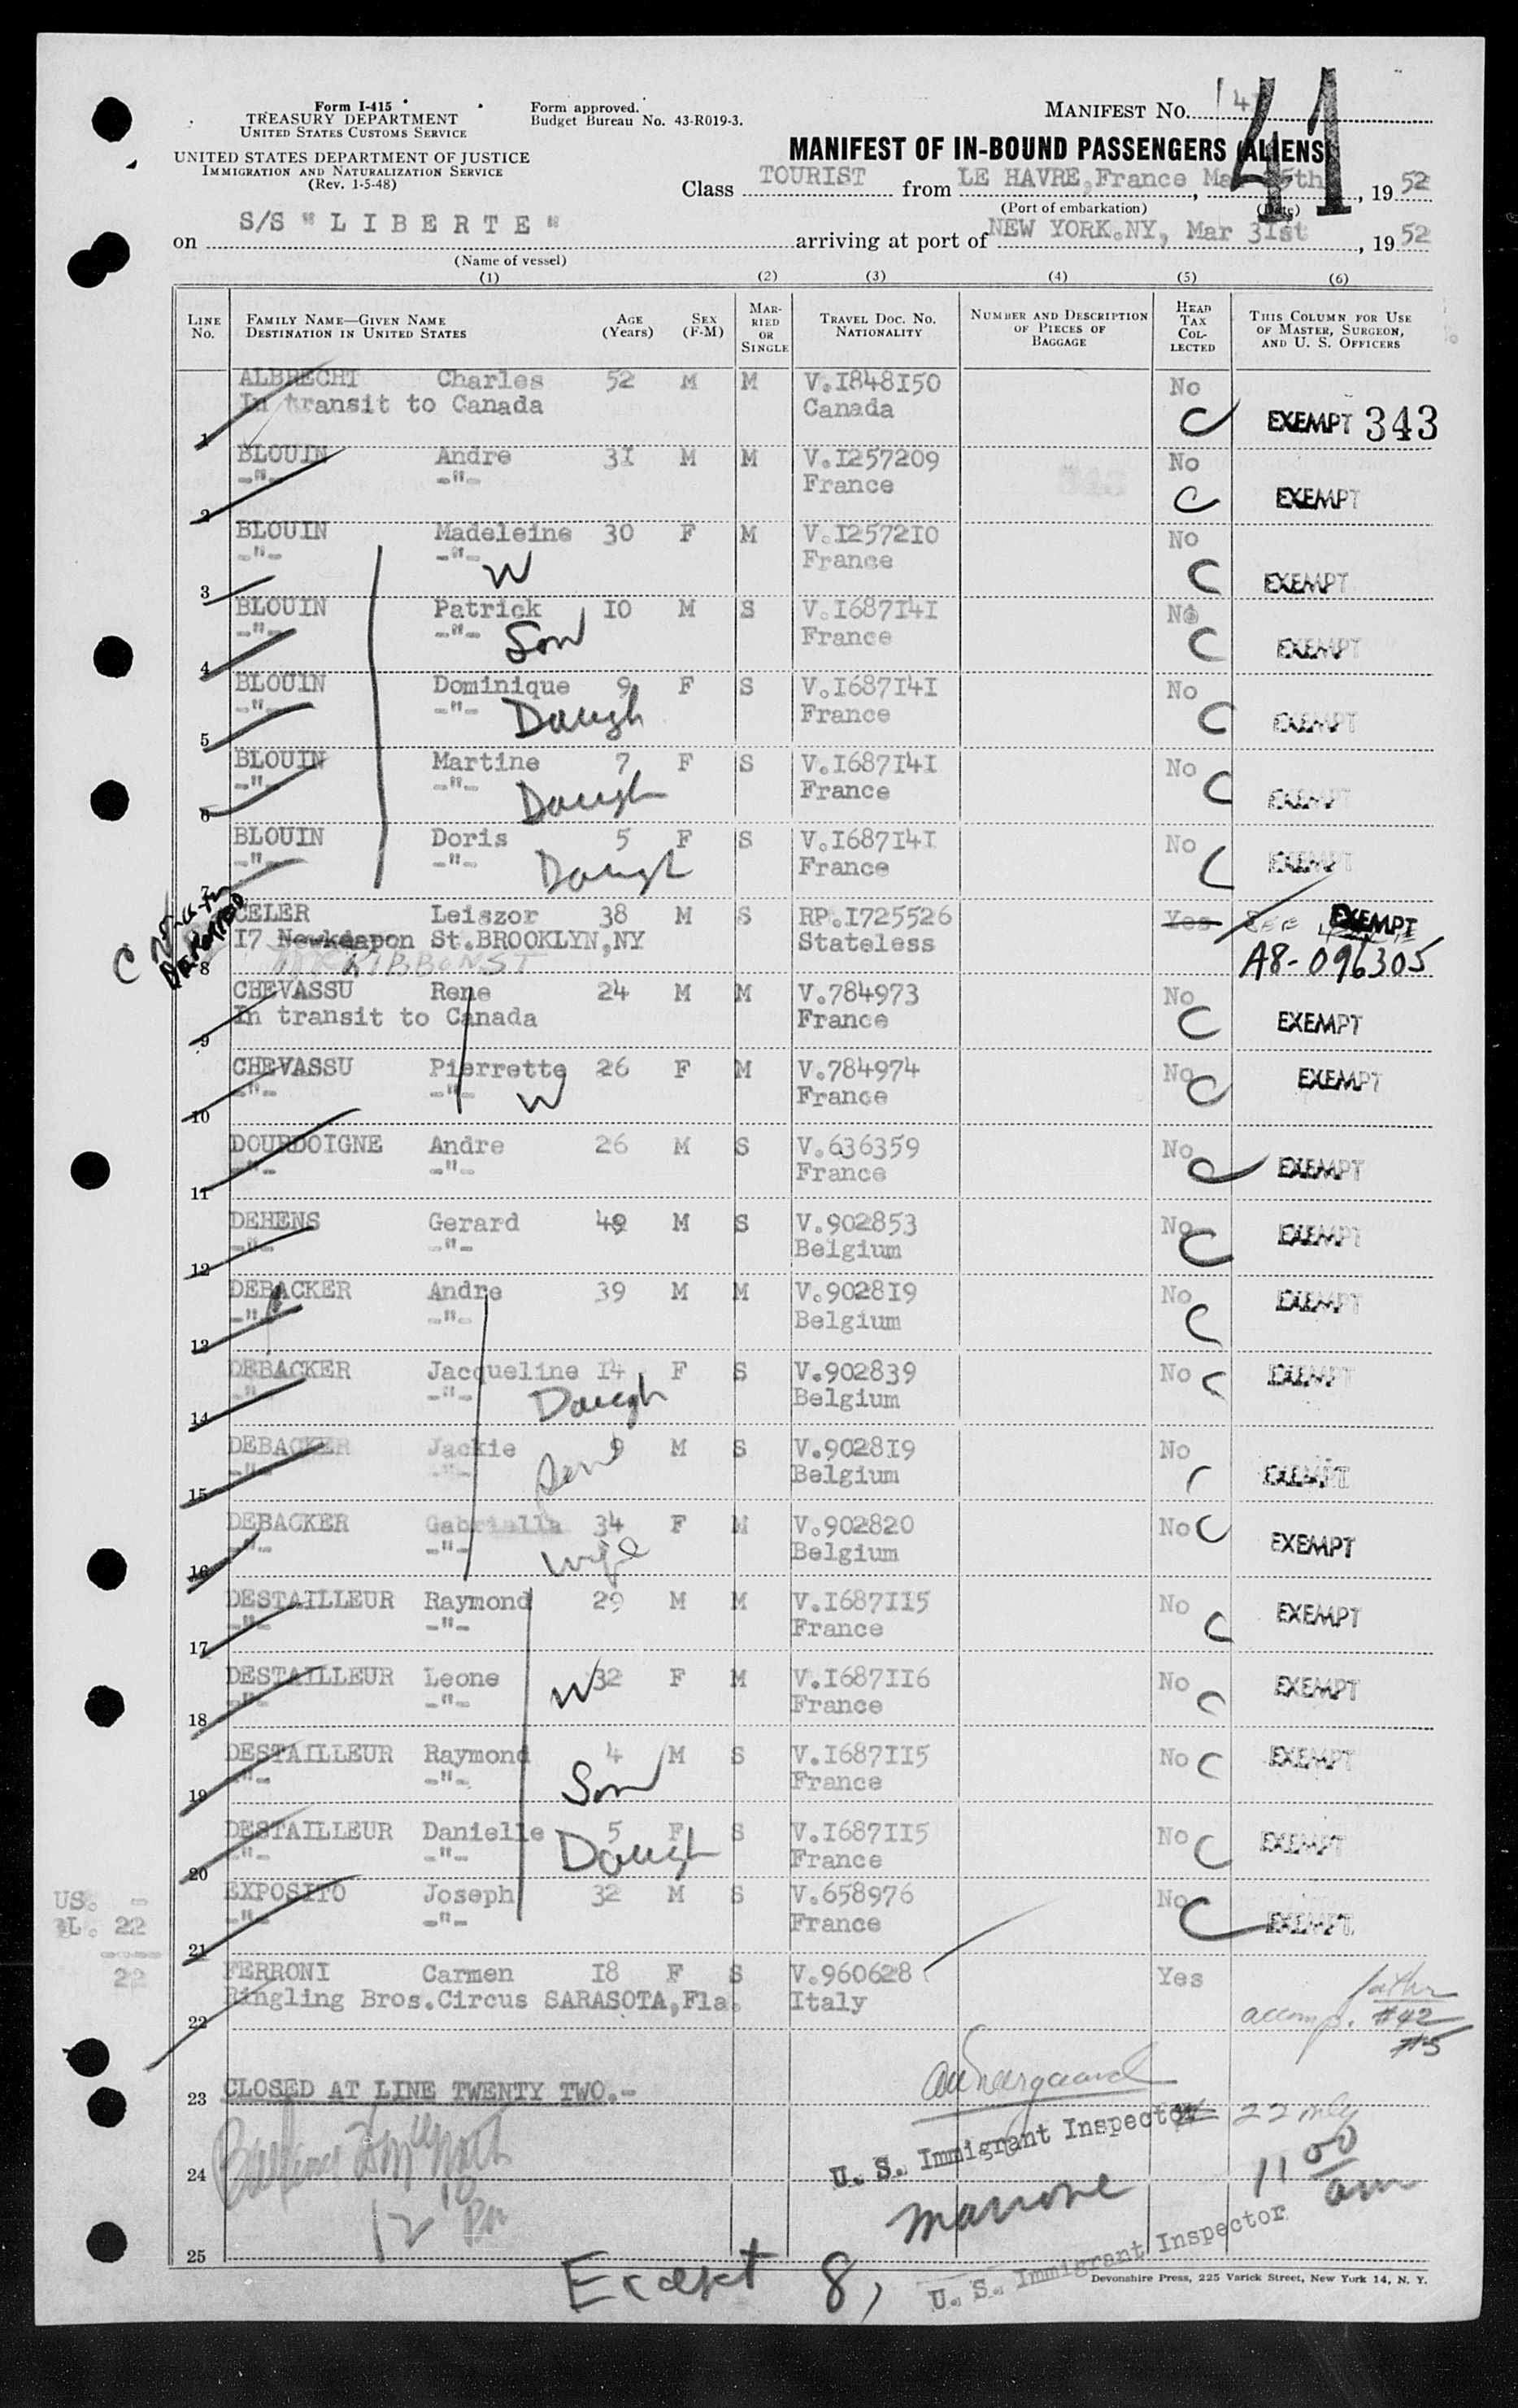 Form I-415
TREASURY DEPARTMENT
UNITED STATES CUSTOMS SERVICE
UNITED STATES DEPARTMENT OF JUSTICE
IMMIGRATION AND NATURALIZATION SERVICE
(Rev. 1-5-48)
Form approved.
Budget Bureau No. 43-R019-3.
MANIFEST No. 41
MANIFEST OF IN-BOUND PASSENGERS (ALIENS)
Class TOURIST from LE HAVRE, France Ma 5th, 19 52
(Port of embarkation) (Date)
on S/S "LIBERTE" arriving at port of NEW YORK.NY, Mar 3Ist, 19 52
(Name of vessel)
(1) (2) (3) (4) (5) (6)
LINE No. FAMILY NAME—GIVEN NAME DESTINATION IN UNITED STATES AGE (Years) SEX (F-M) MARRIED OR SINGLE TRAVEL DOC. NO. NATIONALITY NUMBER AND DESCRIPTION OF PIECES OF BAGGAGE HEAD TAX COLLECTED THIS COLUMN FOR USE OF MASTER, SURGEON, AND U. S. OFFICERS
ALBRECHT Charles 52 M M V.I848I50 No
1 In transit to Canada Canada C EXEMPT 343
BLOUIN Andre 3I M M V.I257209 No
2 -"- -"- France C EXEMPT
BLOUIN Madeleine 30 F M V.I2572I0 No
3 -"- -"- W France C EXEMPT
BLOUIN Patrick I0 M S V.I687I4I No
4 -"- -"- Son France C EXEMPT
BLOUIN Dominique 9 F S V.I687I4I No
5 -"- -"- Daugh France C EXEMPT
BLOUIN Martine 7 F S V.I687I4I No
6 -"- -"- Daugh France C EXEMPT
BLOUIN Doris 5 F S V.I687I4I No
7 -"- -"- Daugh France C EXEMPT
CELER Leiszor 38 M S RP.I725526 Yes See EXEMPT
8 I7 St.BROOKLYN,NY Stateless A8-096305
KIBBON ST
CHEVASSU Rene 24 M M V.784973 No
9 In transit to Canada France C EXEMPT
CHEVASSU Pierrette 26 F M V.784974 No
10 -"- -"- W France C EXEMPT
DOURDOIGNE Andre 26 M S V.636359 No
11 -"- -"- France C EXEMPT
DEHENS Gerard 49 M S V.902853 No
12 -"- -"- Belgium C EXEMPT
DEBACKER Andre 39 M M V.9028I9 No
13 -"- -"- Belgium C EXEMPT
DEBACKER Jacqueline I4 F S V.902839 No
14 -"- -"- Daugh Belgium C EXEMPT
DEBACKER Jackie 9 M S V.9028I9 No
15 -"- -"- Son Belgium C EXEMPT
DEBACKER Gabrialla 34 F M V.902820 No
16 -"- -"- wife Belgium C EXEMPT
DESTAILLEUR Raymond 29 M M V.I687II5 No
17 -"- -"- France C EXEMPT
DESTAILLEUR Leone W 32 F M V.I687II6 No
18 -"- -"- France C EXEMPT
DESTAILLEUR Raymond 4 M S V.I687II5 No
19 -"- -"- Son France C EXEMPT
DESTAILLEUR Danielle 5 F S V.I687II5 No
20 -"- -"- Daugh France C EXEMPT
EXPOSITO Joseph 32 M S V.658976 No
21 -"- -"- France C EXEMPT
US. -
L. 22
----
22
FERRONI Carmen I8 F S V.960628 Yes father
22 Ringling Bros.Circus SARASOTA,Fla. Italy accomp. #42
#5
23 CLOSED AT LINE TWENTY TWO.-
U. S. Immigrant Inspector # 22 only
24 11 00 am
Marrone
12 10 Pm
25 U. S. Immigrant Inspector
Except 8,
Devonshire Press, 225 Varick Street, New York 14, N. Y.